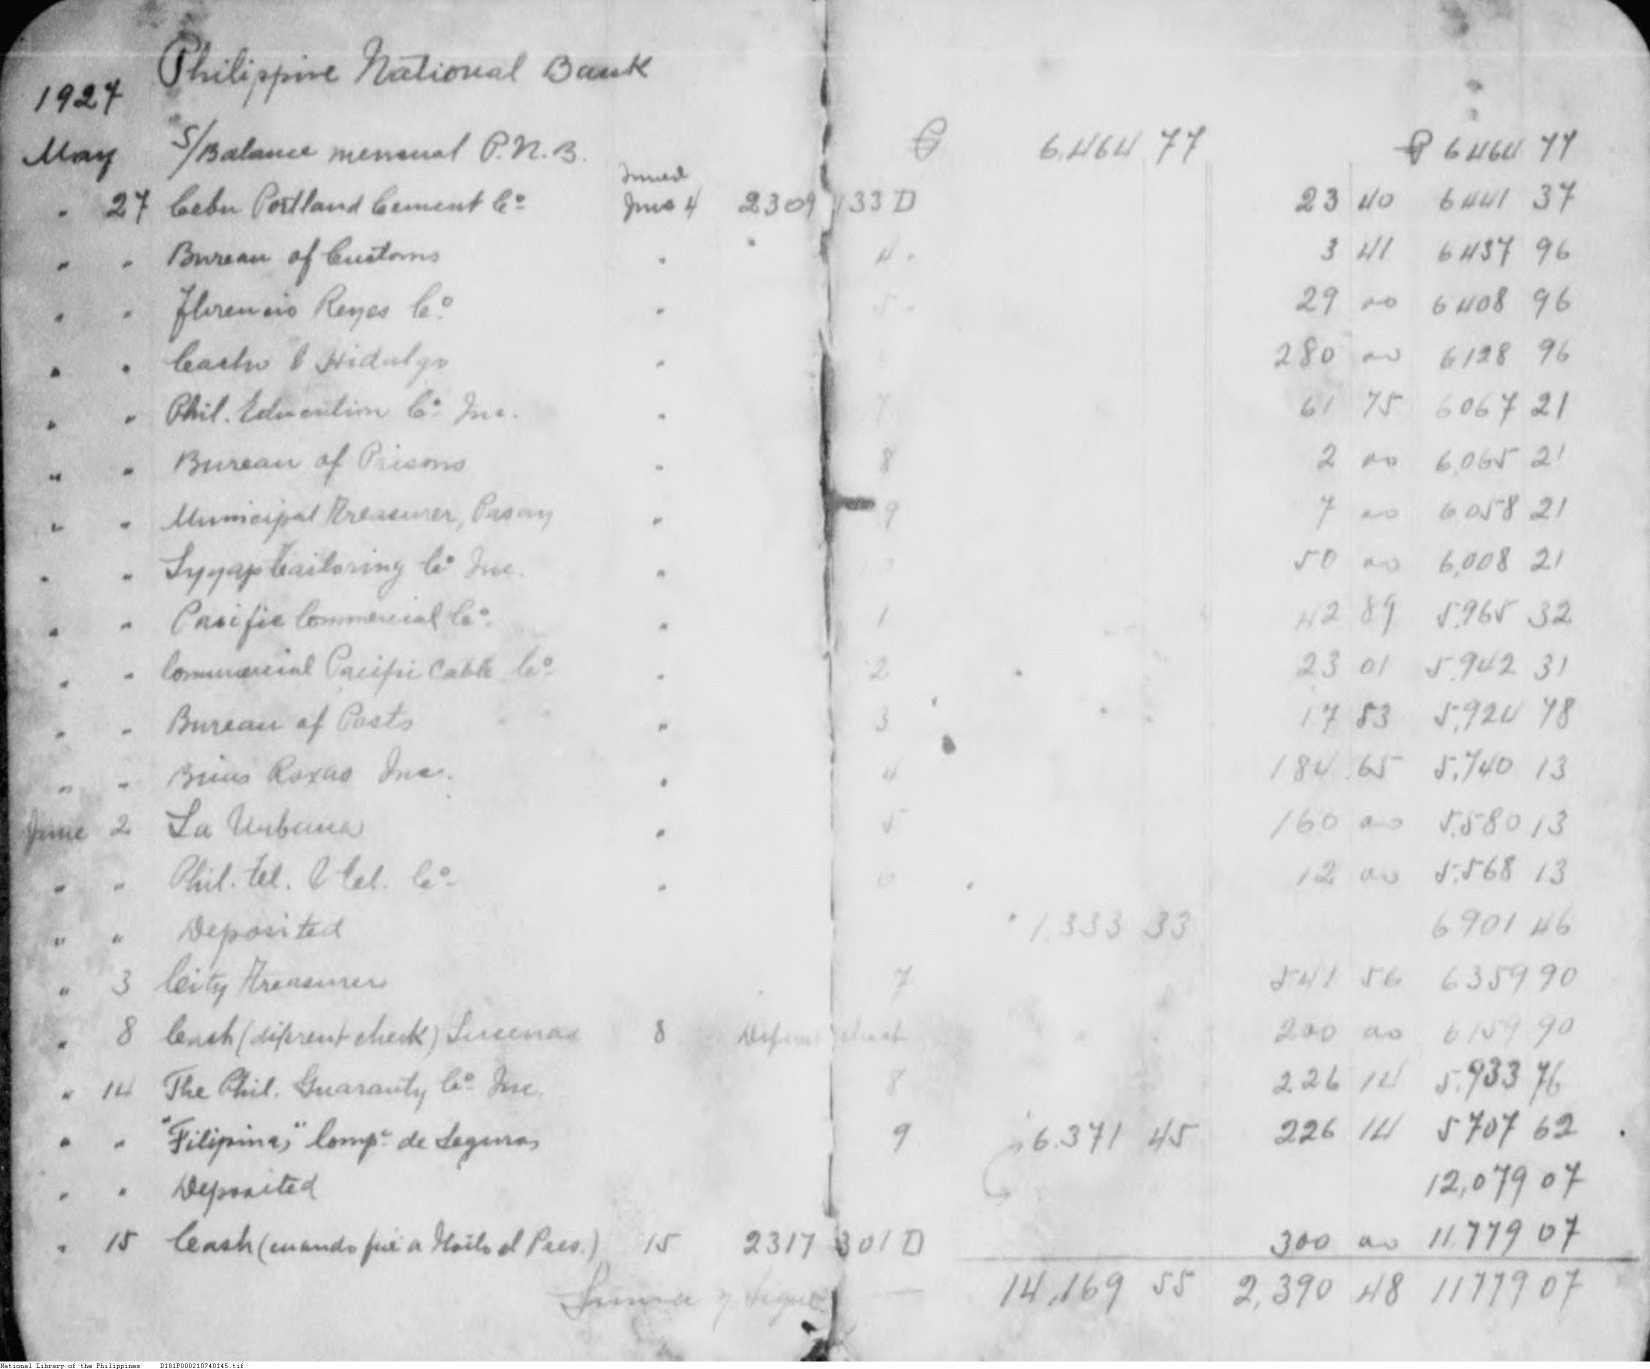 Philippine National Bank
1927
May S/Balance mensual P.N.B. ₱ 6,464 77 ₱ 6464 77
Issued
" 27 Cebu Portland Cement Co. June 4 2309133 D 23 40 6441 37
" " Bureau of Customs " 4 " 3 41 6437 96
" " Florencio Reyes Co. " 5 " 29 00 6408 96
" " Cacho & Hidalgo " 280 00 6128 96
" " Phil. Education Co. Inc. " 7 61 75 6067 21
" " Bureau of Prisons " 8 2 00 6,065 21
" " Municipal Treasurer, Pasay " 9 7 00 6058 21
" " Syyap Tailoring Co. Inc. " 0 50 00 6,008 21
" " Pacific Commercial Co. " 1 42 89 5,965 32
" " Commercial Pacific Cable Co. " 2 23 01 5,942 31
" " Bureau of Posts " 3 17 53 5,924 78
" " Roxas Inc. " 4 184 65 5,740 13
June 2 La Urbana " 5 160 00 5,580 13
" " Phil. Tel. & Tel. Co. " 6 12 00 5,568 13
" " Deposited 1,333 33 6901 46
" 3 City Treasurer 7 541 56 6359 90
" 8 Cash (diferent check) Lucenas 8 Diferent check 200 00 6159 90
" 14 The Phil. Guaranty Co. Inc. 8 226 14 5,933 76
" " "Filipinas," Comp. de Seguros 9 6.371 45 226 14 5707 62
" " Deposited 12,079 07
" 15 Cash (cuando fué a Iloilo el Pres.) 15 2317301 D 300 00 11779 07
Suma y sigue 14,169 55 2,390 48 11779 07
National Library of the Philippines D101P000210740145.tif